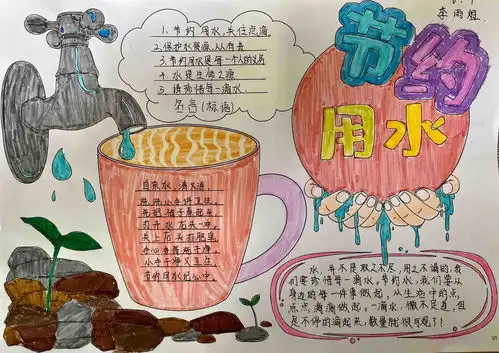 李雨姐
节约
用水
1、节约用水,关住点滴
2、保护水资源,从人有责
3、节约用水是每一个人的义务
4、水是生命之源
5、请珍惜每一滴水
名言(标语)
自来水,清又清
洗洗小手讲卫生。
先把袖子卷起来
打开水龙头冲冲
关上龙头打肥皂
小手干净又卫生
节约用水记心中。
水,并不是取之不尽,用之不竭的,我
们要珍惜每一滴水。节约水,我们要从
身边的每一件事做起,从生活中的点
点点滴滴做起。一滴水,微不足道,但
是不停的滴起来,数量就很可观了!